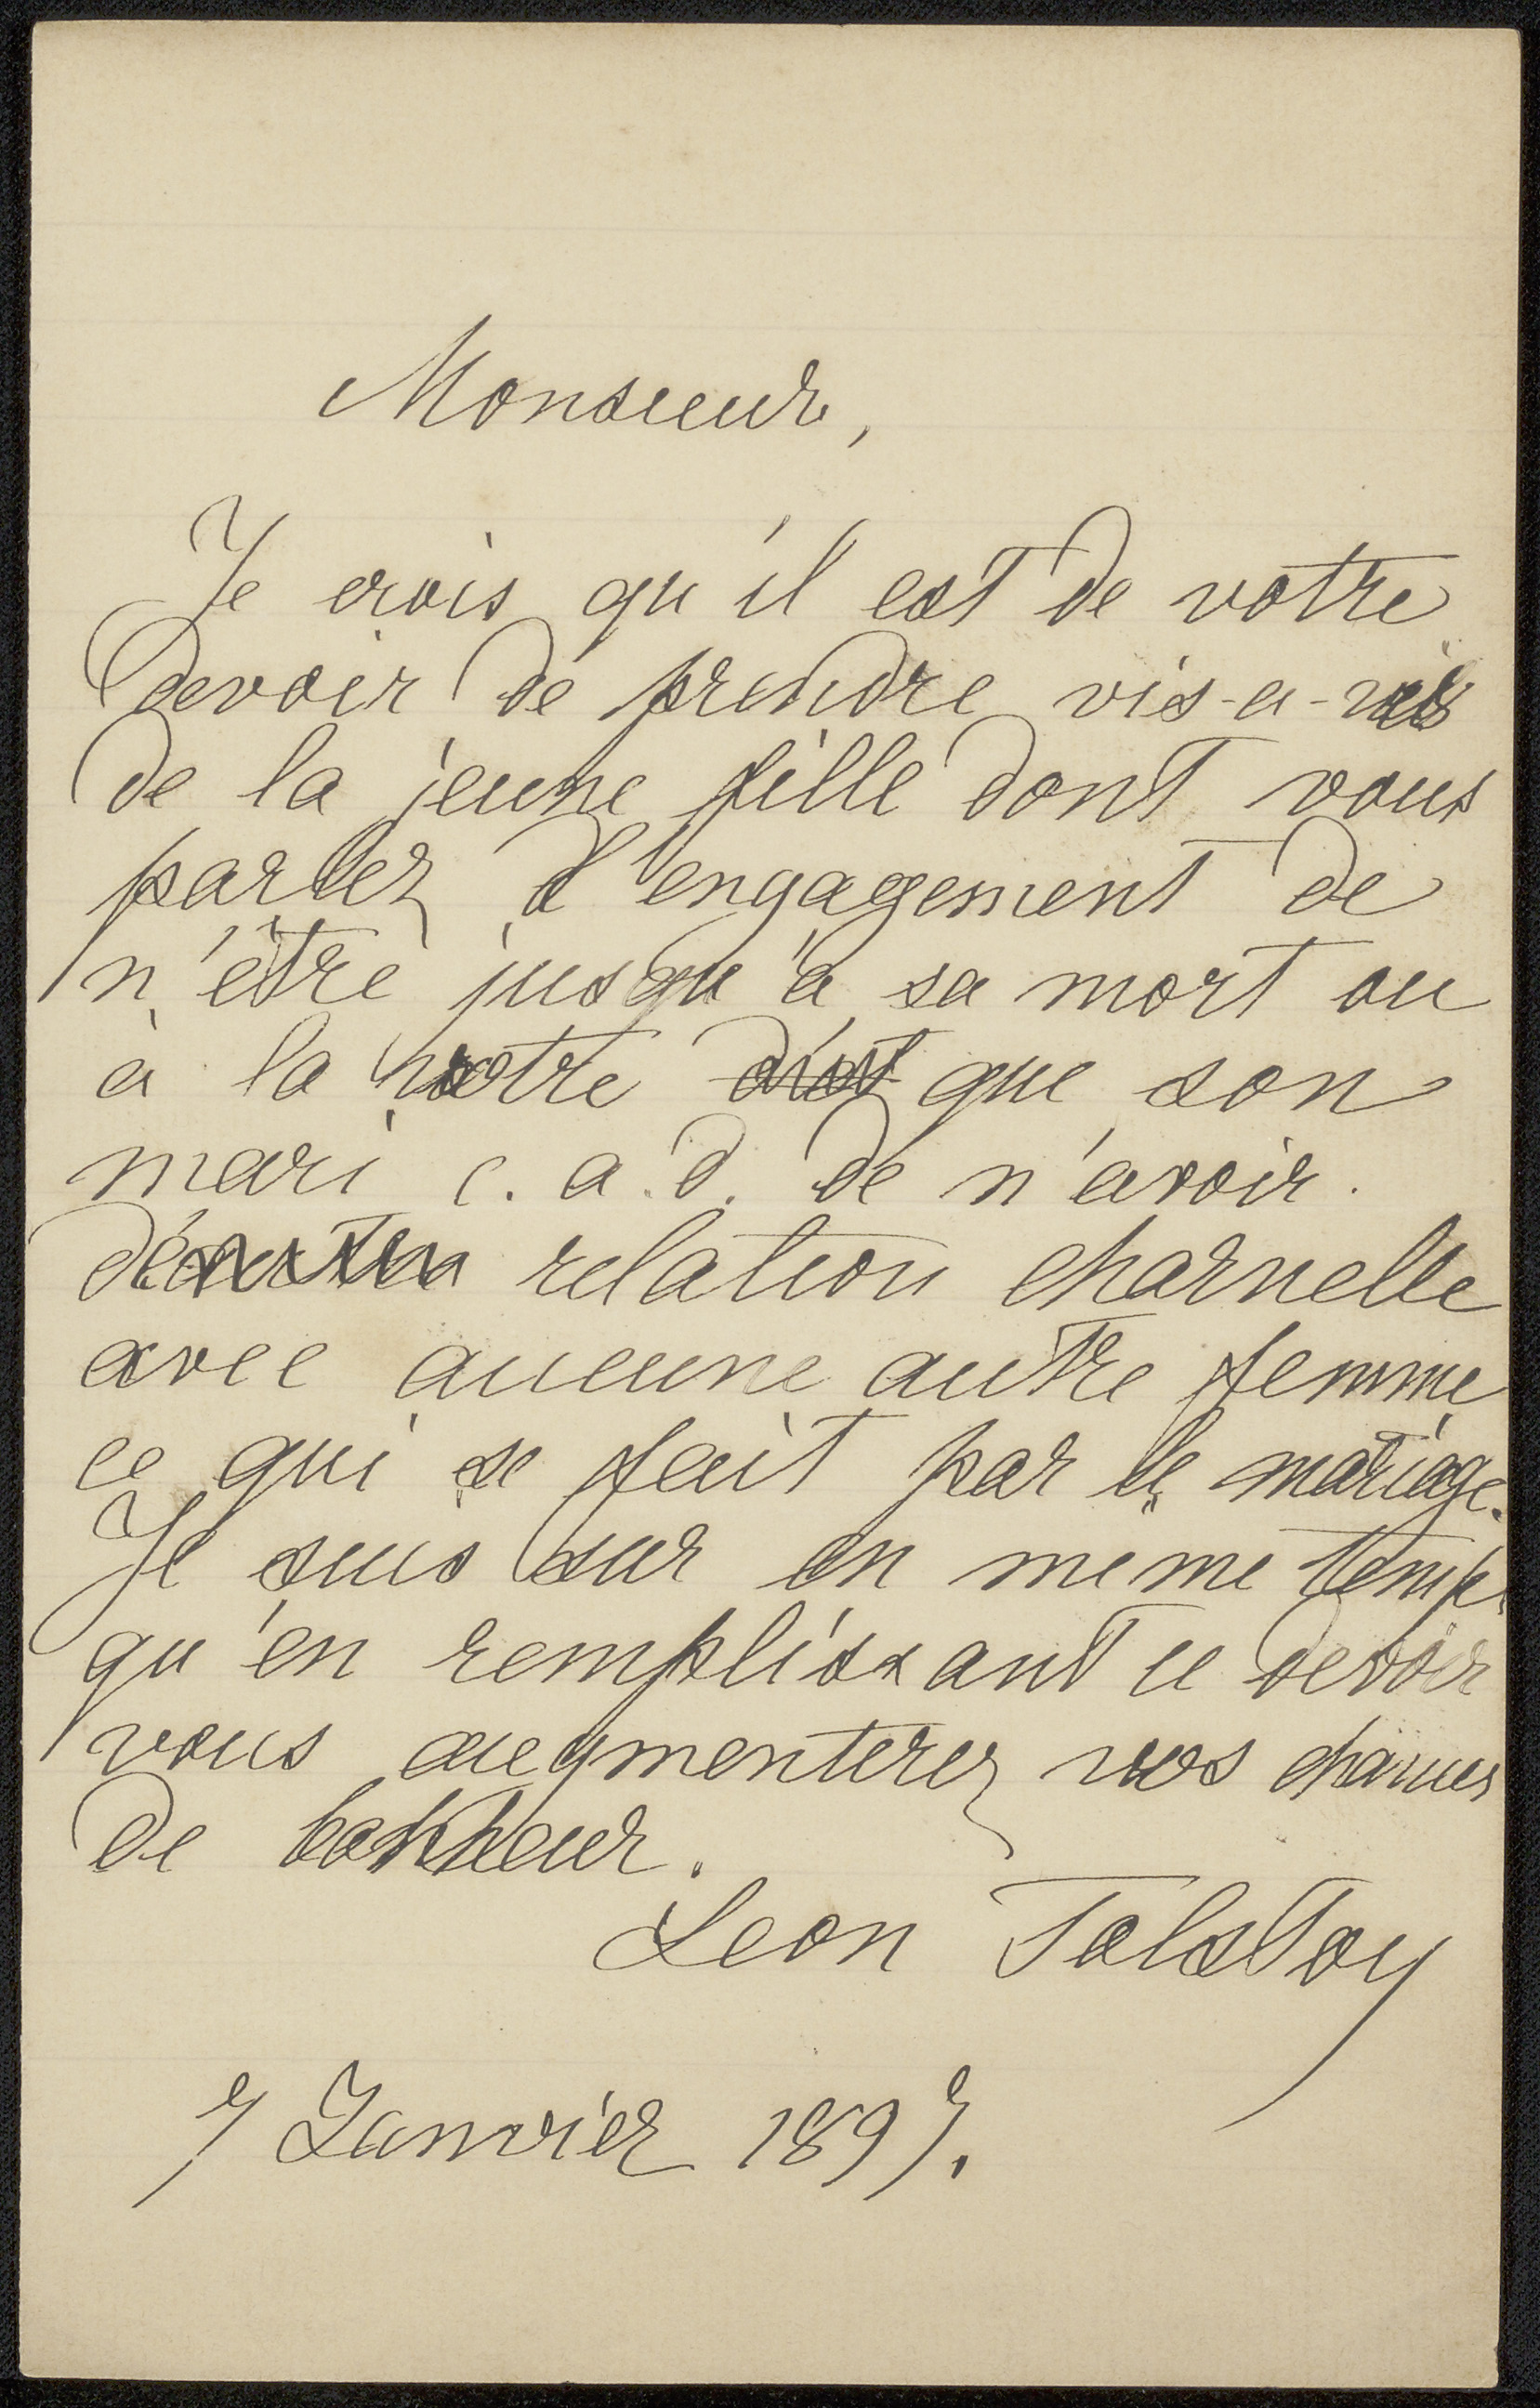 Monsieur,
Je crois qu'il est de votre
devoir de prendre vis-a-vis
de la jeune fille dont vous
parlez l'engagement de
n'être jusqu'à sa mort ou
à la votre que son
mari c. a. d. de n'avoir.
relation charnelle
avec aucune autre femme
ce qui se fait par le mariage.
Je suis sur en meme temps
qu'en remplissant ce devoir
vous augmenterez vos chances
de bonheur.
Leon Tolstoy
7 Janvier 1897.